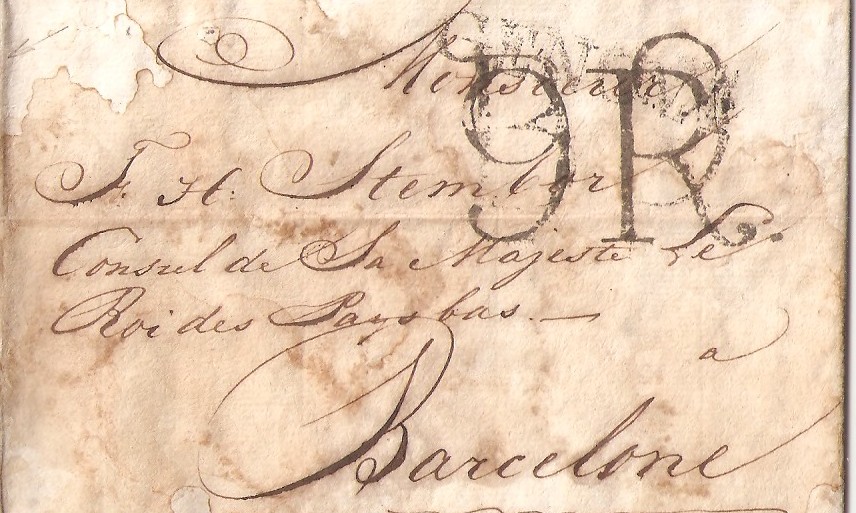 Monsieur
9R.
F. H. Stembor
Consul de Sa Majesté Le
Roi des Paysbas. —
a
Barcelone